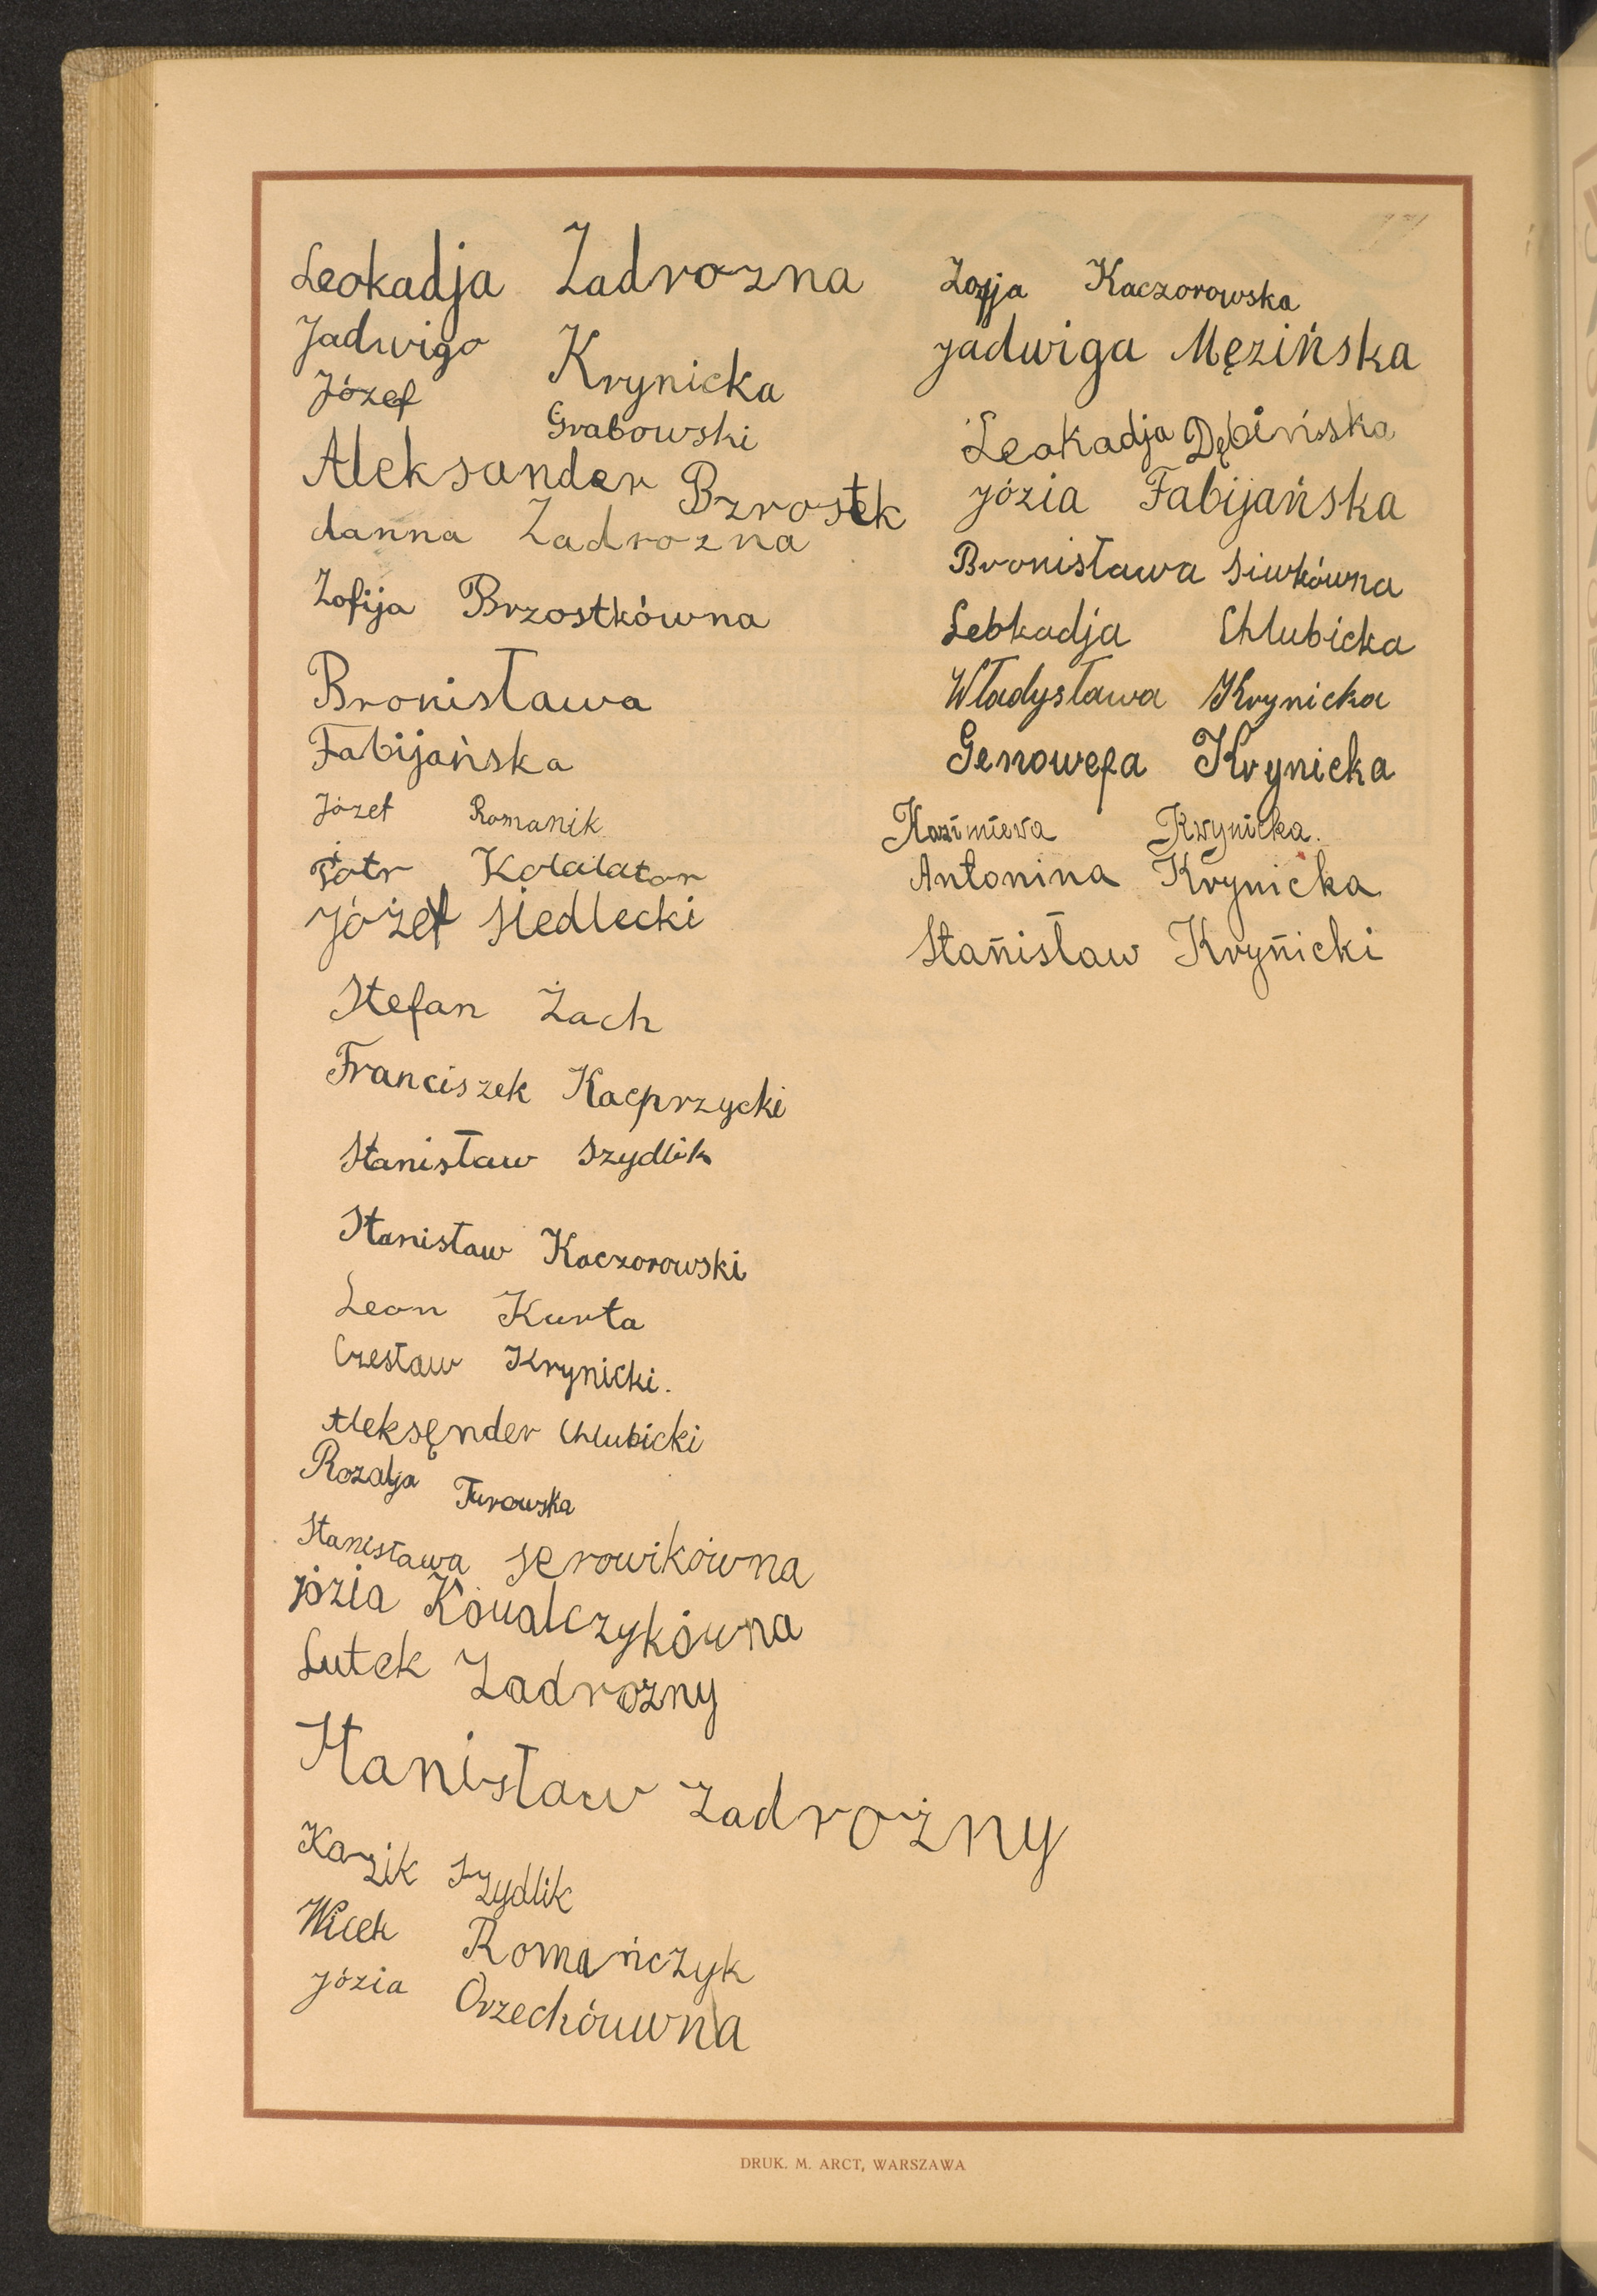 Leokadja Zadrozna
Jadwiga Krynicka
Józef Grabowski
Aleksander Bzrostek
danna Zadrozna
Zofija Brzostkówna
Bronisława
Fabijańska
Józef Romanik
Piotr
Józef Siedlecki
Stefan Żach
Franciszek Kacprzycki
Stanisław Szydlik
Stanisław Kaczorowski
Leon Kurta
Czesław Krynicki.
Aleksęnder Chlubicki
Rozalja Turowska
Stanisława Serowikówna
józia Kowalczykówna
Lutek Zadrozny
Stanisław Zadrożny
Kazik Szydlik
Wicek Romańczyk
Józia Orzechówwna
Zofja Kaczorowska
Jadwiga Męzińska
Leokadja Dębińska
Józia Fabijańska
Bronisława Siwkówna
Leokadja Chlubicka
Władysława Krynicka
Genowefa Krynicka
Kazimiera Krynicka.
Antonina Krynicka
Stanisław Krynicki
DRUK. M. ARCT, WARSZAWA